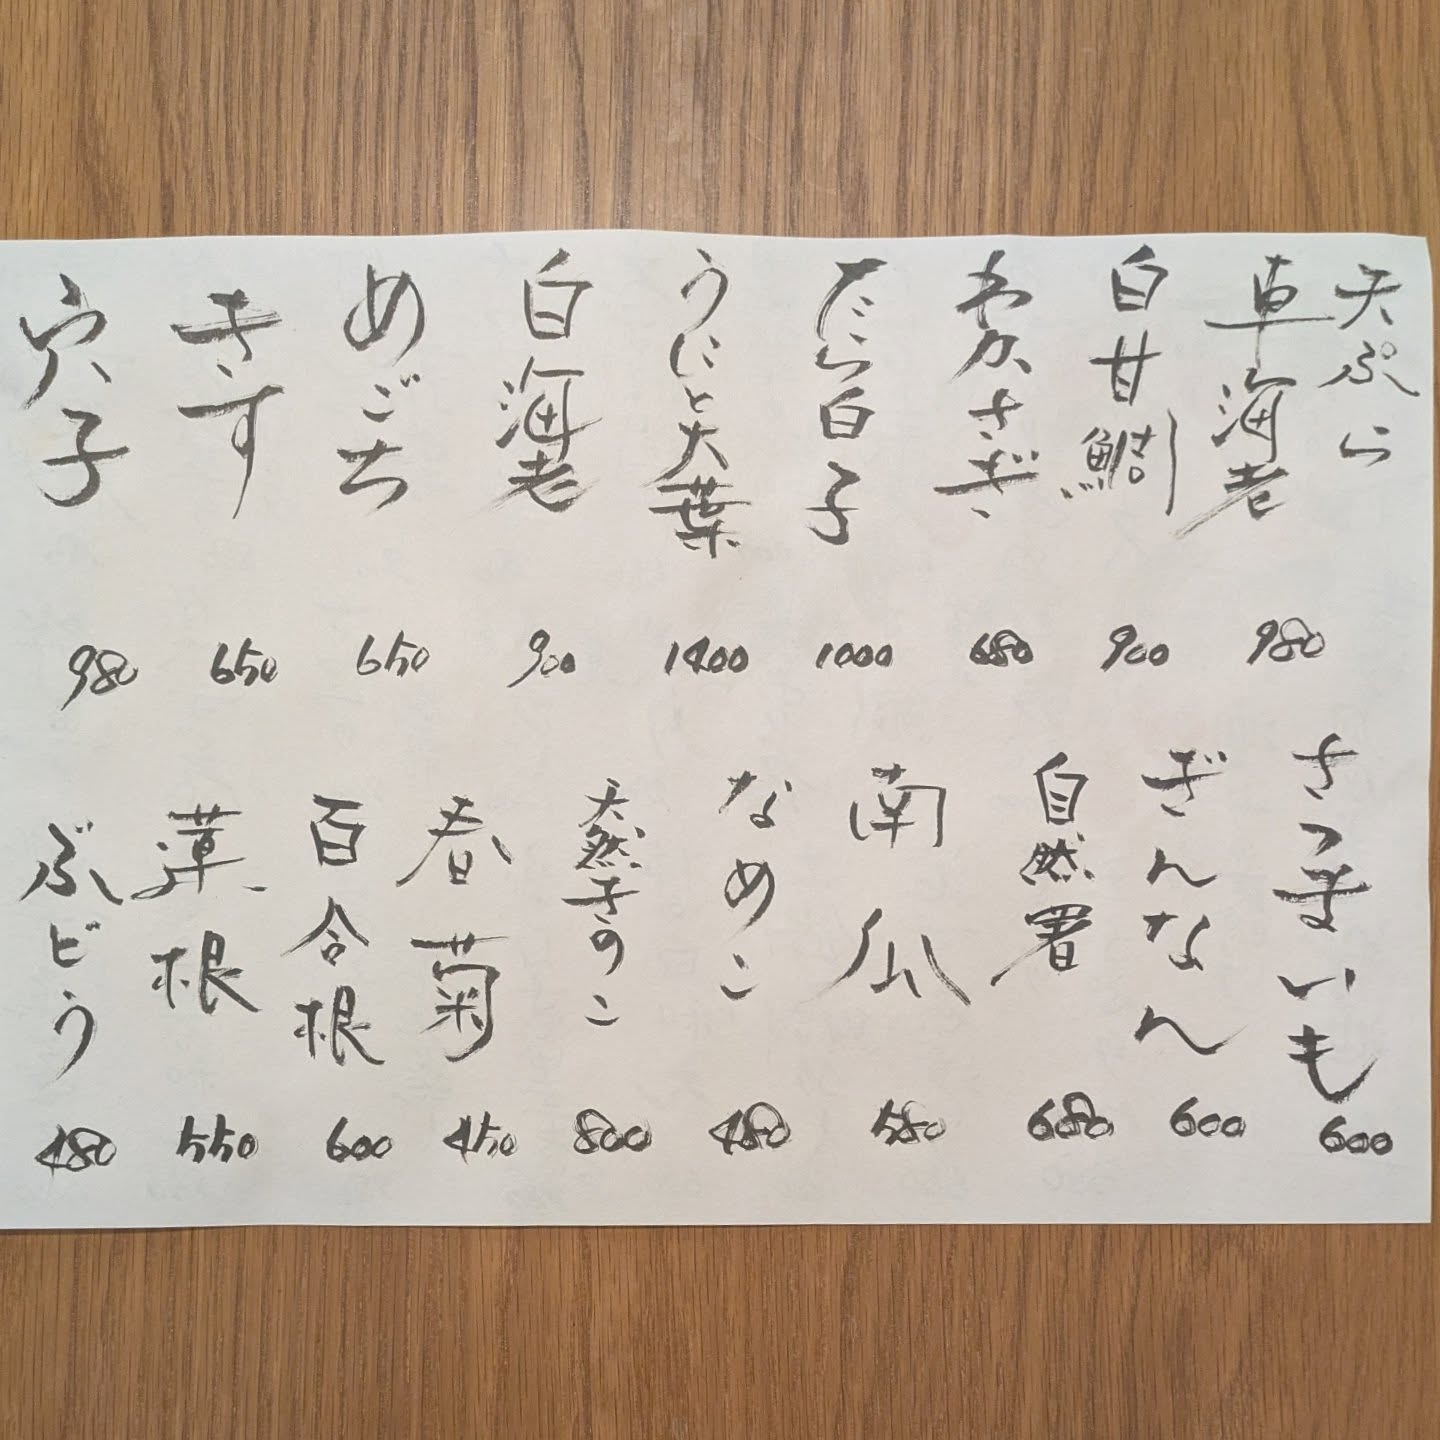 天ぷら
車海老 980
白甘鯛 900
わかさぎ 680
たら白子 1000
うにと大葉 1400
白海老 900
めごち 650
きす 650
穴子 980
さつまいも 600
ぎんなん 600
自然署 680
南瓜 580
なめこ 480
天然きのこ 800
春菊 450
百合根 600
蓮根 550
ぶどう 480